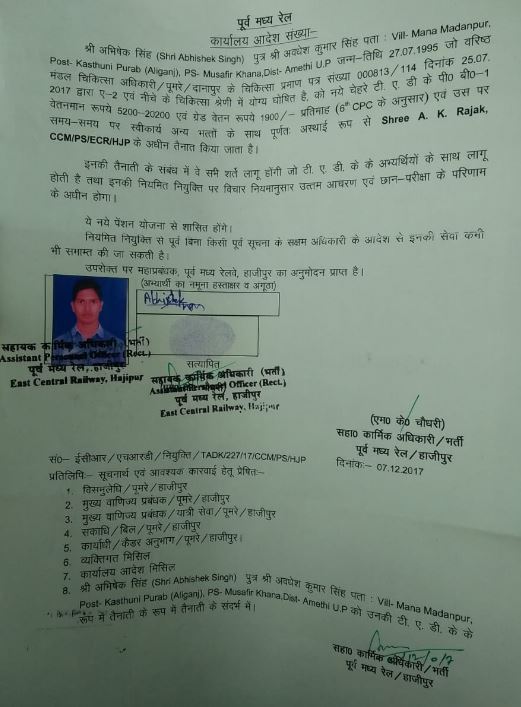 पूर्व मध्य रेल
कार्यालय आदेश संख्या–
श्री अभिषेक सिंह (Shri Abhishek Singh) पुत्र श्री अवधेश कुमार सिंह पता : Vill- Mana Madanpur,
Post- Kasthuni Purab (Aliganj), PS- Musafir Khana,Dist- Amethi U.P जन्म–तिथि 27.07.1995 जो वरिष्ठ
मंडल चिकित्सा अधिकारी/पूमरे/दानापुर के चिकित्सा प्रमाण पत्र संख्या 000813/114 दिनांक 25.07.
2017 द्वारा ए–2 एवं नीचे के चिकित्सा श्रेणी में योग्य घोषित है, को नये चेहरे टी. ए. डी. के पी० बी०–1
वेतनमान रूपये 5200–20200 एवं ग्रेड वेतन रूपये 1900/– प्रतिमाह (6th CPC के अनुसार) एवं उस पर
समय–समय पर स्वीकार्य अन्य भत्तों के साथ पूर्णतः अस्थाई रूप से Shree A. K. Rajak,
CCM/PS/ECR/HJP के अधीन तैनात किया जाता है।
इनकी तैनाती के संबंध में वे सभी शर्ते लागू होंगी जो टी. ए. डी. के के अभ्यर्थियों के साथ लागू
होती है तथा इनकी नियमित नियुक्ति पर विचार नियमानुसार उत्तम आचरण एवं छान–परीक्षा के परिणाम
के अधीन होगा।
ये नये पेंशन योजना से शासित होंगे।
नियमित नियुक्ति से पूर्व बिना किसी पूर्व सूचना के सक्षम अधिकारी के आदेश से इनकी सेवा कभी
भी समाप्त की जा सकती है।
उपरोक्त पर महाप्रबंधक, पूर्व मध्य रेलवे, हाजीपुर का अनुमोदन प्राप्त है।
(अभ्यार्थी का नमूना हस्ताक्षर व अंगूठा)
Abhishek
सत्यापित
सहायक कार्मिक अधिकारी (भर्ती)
Assistant Personnel Officer (Rect.)
पूर्व मध्य रेल, हाजीपुर
East Central Railway, Hajipur
सहायक कार्मिक अधिकारी (भर्ती)
Assistant Personnel Officer (Rect.)
पूर्व मध्य रेल, हाजीपुर
East Central Railway, Hajipur
(एम० के० चौधरी)
सहा० कार्मिक अधिकारी/भर्ती
पूर्व मध्य रेल/हाजीपुर
दिनांक:– 07.12.2017
सं०– ईसीआर/एचआरडी/नियुक्ति/TADK/227/17/CCM/PS/HJP
प्रतिलिपि:– सूचनार्थ एवं आवश्यक कारवाई हेतू प्रेषितः–
1. विसमुलेधि/पूमरे/हाजीपुर
2. मुख्य वाणिज्य प्रबंधक/पूमरे/हाजीपुर
3. मुख्य वाणिज्य प्रबंधक/यात्री सेवा/पूमरे/हाजीपुर
4. सकाधि/बिल/पूमरे/हाजीपुर
5. कार्याधी/कैडर अनुभाग/पूमरे/हाजीपुर।
6. व्यक्तिगत मिसिल
7. कार्यालय आदेश मिसिल
8. श्री अभिषेक सिंह (Shri Abhishek Singh) पुत्र श्री अवधेश कुमार सिंह पता : Vill- Mana Madanpur,
Post- Kasthuni Purab (Aliganj), PS- Musafir Khana,Dist- Amethi U.P को उनकी टी. ए. डी. के के
रूप में तैनाती के रूप में तैनाती के संदर्भ में।
सहा० कार्मिक अधिकारी/भर्ती
पूर्व मध्य रेल/हाजीपुर